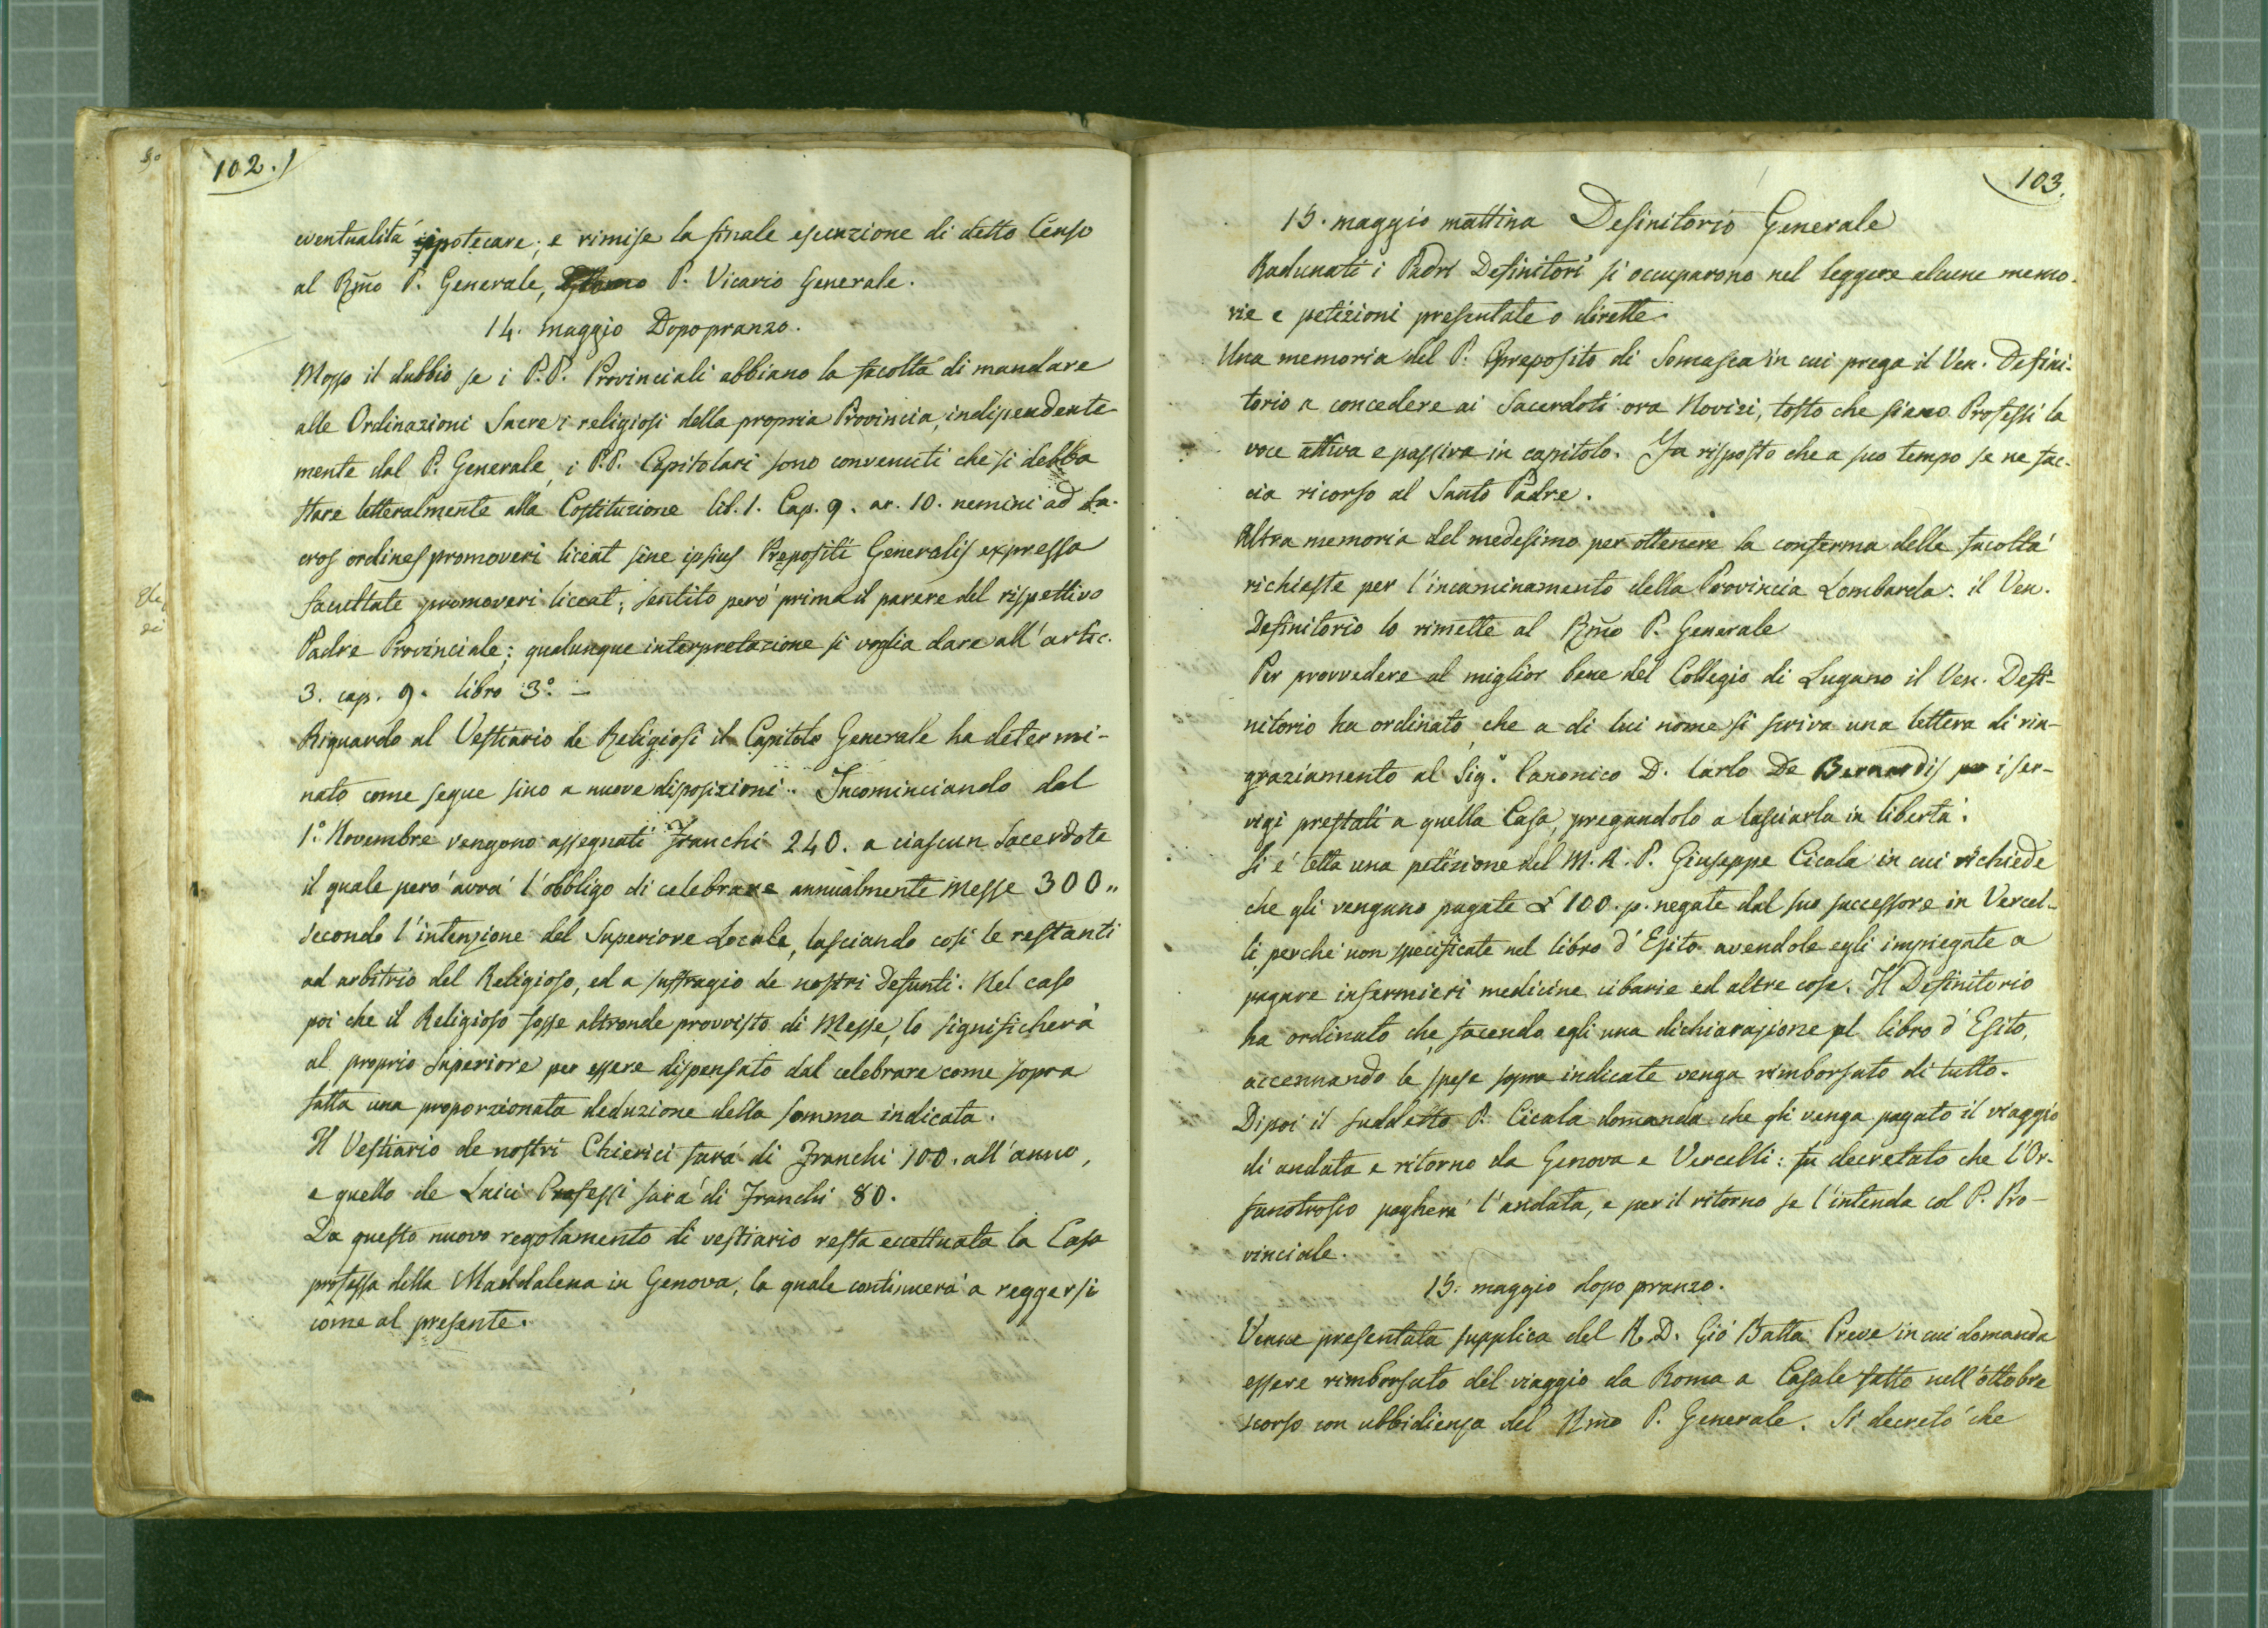 102.
eventualità ippotecare; e rimise la finale esecuzione di detto Censo
al Rmo P. Generale, P. Vicario Generale.
14. maggio Dopopranzo.
Mosso il dubbio se i P.P. Provinciali abbiano la facoltà di mandare
alle Ordinazioni Sacre i religiosi della propria Provincia, indipendente
mente dal P. Generale, i P.P. Capitolari sono convenuti che si debba
stare letteralmente alla Costituzione lib. 1. Cap. 9. ar. 10. nemini ad sa-
cros ordines promoveri liceat sine ipsius Prepositi Generalis expressa
facultate promoveri liceat; sentito però prima il parere del rispettivo
Padre Provinciale; qualunque interpretazione si voglia dare all'artic.
3. cap. 9. libro 3º. –
Riguardo al Vestiario de Religiosi il Capitolo Generale ha determi-
nato come segue sino a nuove disposizioni. Incominciando dal
1º. Novembre vengono assegnati Franchi 240. a ciascun Sacerdote
il quale però avrà l'obbligo di celebrare annualmente Messe 300,,
secondo l'intenzione del Superiore Locale, lasciando così le restanti
ad arbitrio del Religioso, ed a suffragio de nostri Defunti. Nel caso
poi che il Religioso fosse altronde provvisto di Messe, lo significherà
al proprio Superiore per essere dispensato dal celebrare come sopra
fatta una proporzionata deduzione della somma indicata.
Il Vestiario de nostri Chierici sarà di Franchi 100. all'anno,
e quello de Laici Professi sarà di Franchi 80.
Da questo nuovo regolamento di vestiario resta eccettuata la Casa
professa della Maddalena in Genova, la quale continuerà a reggersi
come al presente.
103.
15. maggio mattina Definitorio Generale
Radunati i Padri Definitori si occuparono nel leggere alcune memo-
rie e petizioni presentate o dirette.
Una memoria del P. Preposito di Somasca in cui prega il Ven. Defini-
torio a concedere ai Sacerdoti ora Novizi, tosto che siano Professi la
voce attiva e passiva in capitolo. Fu risposto che a suo tempo se ne fac-
cia ricorso al Santo Padre.
Altra memoria del medesimo per ottenere la conferma delle facoltà
richieste per l'incaminamento della Provincia Lombarda: il Ven.
Definitorio lo rimette al Rmo P. Generale
Per provvedere al miglior bene del Collegio di Lugano il Ven. Defi-
nitorio ha ordinato, che a di lui nome si scriva una lettera di rin-
graziamento al Sig.r Canonico D. Carlo De Bernardis pe i ser-
vigi prestati a quella Casa, pregandolo a lasciarla in libertà.
Si è letta una petizione del M. R. P. Giuseppe Cicala in cui richiede
che gli vengano pagate £ 100. p. negate dal suo successore in Vercel-
li, perchè non specificate nel libro d'Esito avendole egli impiegate a
pagare infermieri medicine cibarie ed altre cose. Il Definitorio
ha ordinato che, facendo egli una dichiarazione al libro d'Esito,
accennando le spese sopra indicate venga rimborsato di tutto.
Dipoi il suddetto P. Cicala domanda che gli venga pagato il viaggio
di andata e ritorno da Genova e Vercelli: fu decretato che l'Or-
fanotrofio pagherà l'andata, e per il ritorno se l'intenda col P. Pro-
vinciale.
15. maggio dopo pranzo.
Venne presentata supplica del R. D. Gio Batta Preve in cui domanda
essere rimborsato del viaggio da Roma a Casale fatto nell'ottobre
scorso con ubbidienza del Rmo P. Generale. Si decretò che